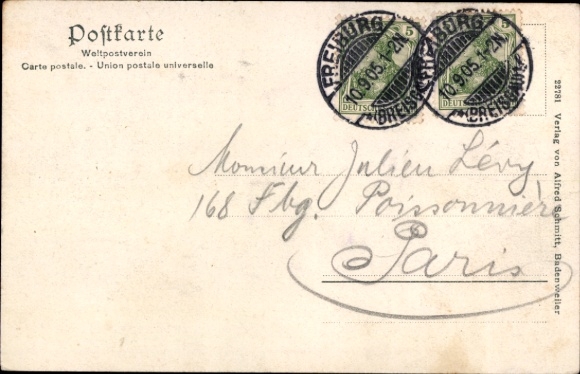 Postkarte
Weltpostverein
Carte postale. - Union postale universelle
FREIBURG
10.9.05.1-2N
(BREISGAU)
5
DEUTSCH
FREIBURG
10.9.05.1-2N
(BREISGAU)
5
DEUTSCH
Monsieur Julien Lévy
168 Fbg. Poissonnière
Paris
22781 Verlag von Alfred Schmitt, Badenweiler